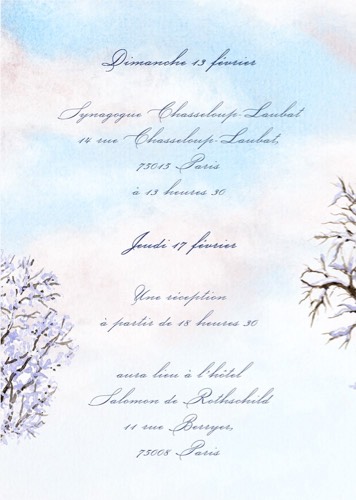 Dimanche 13 février
Synagogue Chasseloup-Laubat
14 rue Chasseloup-Laubat,
75015 Paris
à 13 heures 30
Jeudi 17 février
Une réception
à partir de 18 heures 30
aura lieu à l'hôtel
Salomon de Rothschild
11 rue Berryer,
75008 Paris